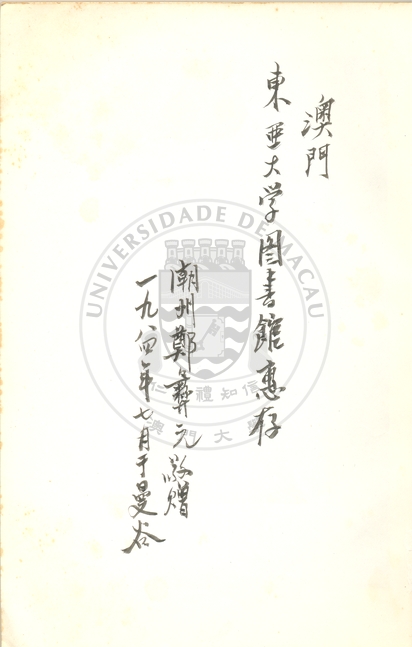 澳門
東亜大学图書館惠存
潮州鄭彝元敬赠
一九八四年七月于曼谷
UNIVERSIDADE DE MACAU
仁義禮知信
澳門大學